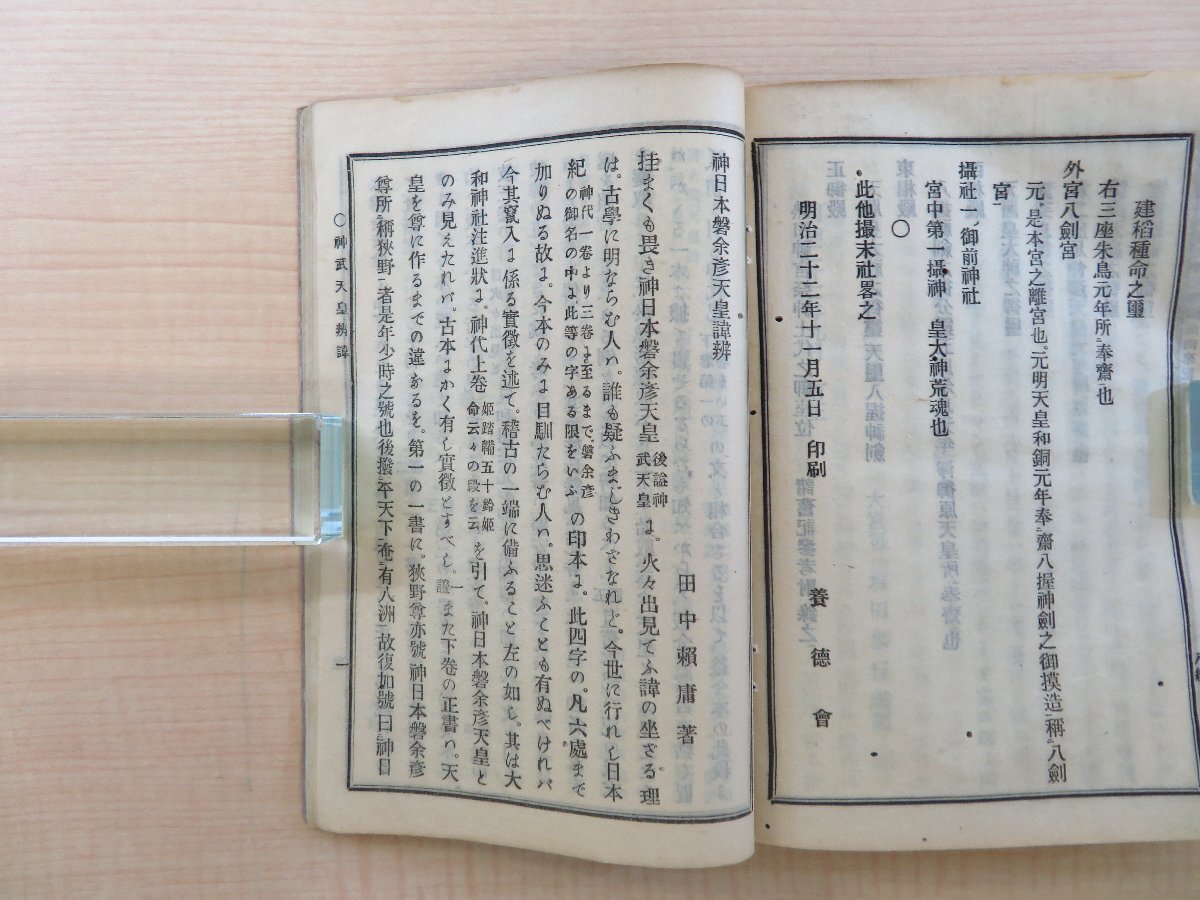 建稻種命之璽
右三座朱鳥元年所奉齋也
外宮八劍宮
元、是本宮之離宮也。元明天皇和銅元年奉齋八握神劍之御摸造稱八劍
宮
攝社一、御前神社
宮中第一攝神 皇大神荒魂也
○
此他撮末社畧之
明治二十二年十一月五日 印刷 養德會
神日本磐余彦天皇諱辨
田中賴庸著
挂まくも畏き神日本磐余彦天皇後謚神武天皇は、火々出見てふ諱の坐ざる理
は。古學に明ならむ人ハ。誰も疑ふまじきわざなれど。今世に行れし日本
紀神代一卷より三卷に至るまで、磐余彦の御名の中に、此等の字ある限をいふの印本に。此四字の。凡六處まで
加りぬる故に。今本のみに目馴たらむ人ハ。思迷ふことも有ぬべけれバ
今其竄入に係る實徴を述て。稽古の一端に備ふること左の如し。其は大
和神社注進狀に。神代上卷姫踏鞴五十鈴姫命云々の段を云を引て。神日本磐余彦天皇と
のみ見えたれバ。古本にかく有し實徴とすべし。證一また下卷の正書ハ。天
皇を尊に作るまでの違あるを。第一の一書に。狹野尊亦號神日本磐余彦
尊所稱狹野者是年少時之號也後撥平天下奄有八洲故復加號曰神日
○神武天皇辨諱
一